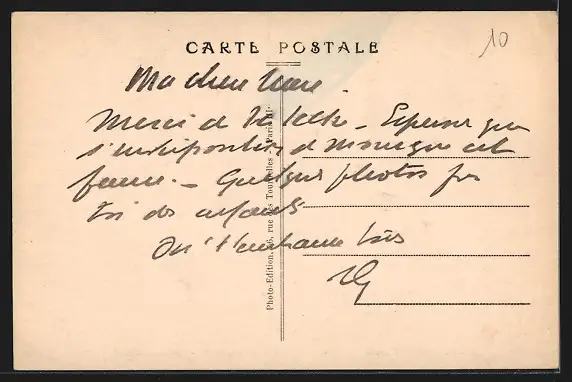 10
CARTE POSTALE
Ma chère
Merci de ta lettre - Espérons que
l'indisposition de Monique est
finie. - Quelques photos pr
toi des enfants
On t'embrasse tous
Photo-Edition, 26, rue des Tournelles, Paris III